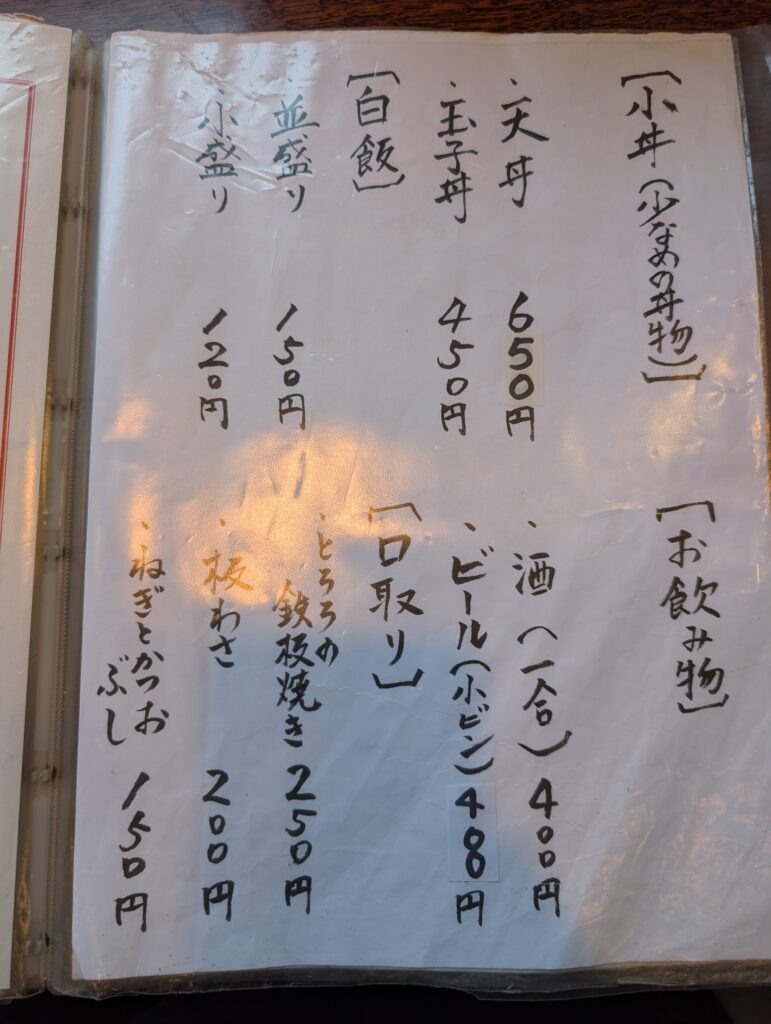 [小丼(少なめの丼物)]
・天丼 650円
・玉子丼 450円
[白飯]
・並盛り 150円
・小盛り 120円
[お飲み物]
・酒(一合) 400円
・ビール(小ビン) 480円
[口取り]
・とろろの
鉄板焼き 250円
・板わさ 200円
・ねぎとかつお
ぶし 150円